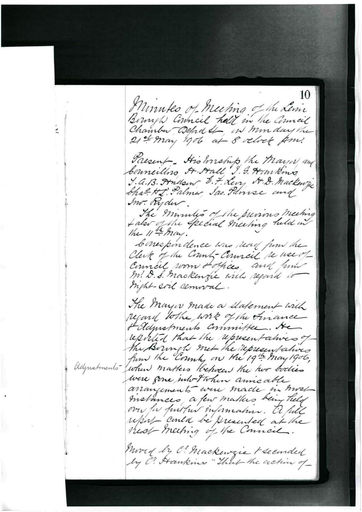 10
Minutes of Meeting of the Levin
Borough Council held in the Council
Chamber Oxford St on Monday the
21st May 1906 at 8 o'clock p.m.
Present. His Worship the Mayor and
Councillors H. Hall J. G. Hankins
T. A. B. Hudson F. F. Levy H. D. Mackenzie
Chas. H. S. Palmer Jas Prouse and
Jno. Ryder.
The Minutes of the previous Meeting
& also of the special Meeting held on
the 11th May.
Correspondence was read from the
Clerk of the County Council re use of
Council room & offices and from
Mr D. S. Mackenzie with regard to
Night soil removal.
The Mayor made a statement with
regard to the work of the Finance
& Adjustments Committee. He
reported that the representatives of
the Borough met the representatives
from the County on the 19th May 1906,
Adjustments
when matters between the two bodies
were gone into & when amicable
arrangements were made in most
instances, a few matters being held
over for further information. A full
report could be presented at the
next Meeting of the Council.
Moved by Cr Mackenzie & seconded
by Cr Hankins "That the action of